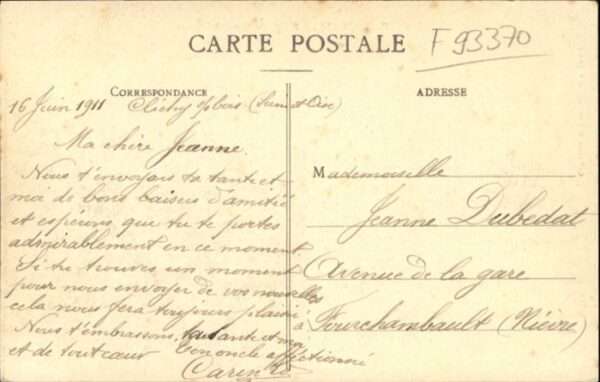 CARTE POSTALE
F 93370
CORRESPONDANCE
ADRESSE
16 Juin 1911 Clichy s/bois (Seine et Oise)
Ma chère Jeanne.
Nous t'envoyons ta tante et
moi de bons baisers d'amitié
et espérons que tu te portes
admirablement en ce moment.
Si tu trouves un moment
pour nous envoyer de vos nouvelles
cela nous fera toujours plaisir
Nous t'embrassons, ta tante et moi
et de tout cœur Ton oncle affectionné
Mademoiselle
Jeanne Dubedat
Avenue de la gare
à Fourchambault (Nièvre)